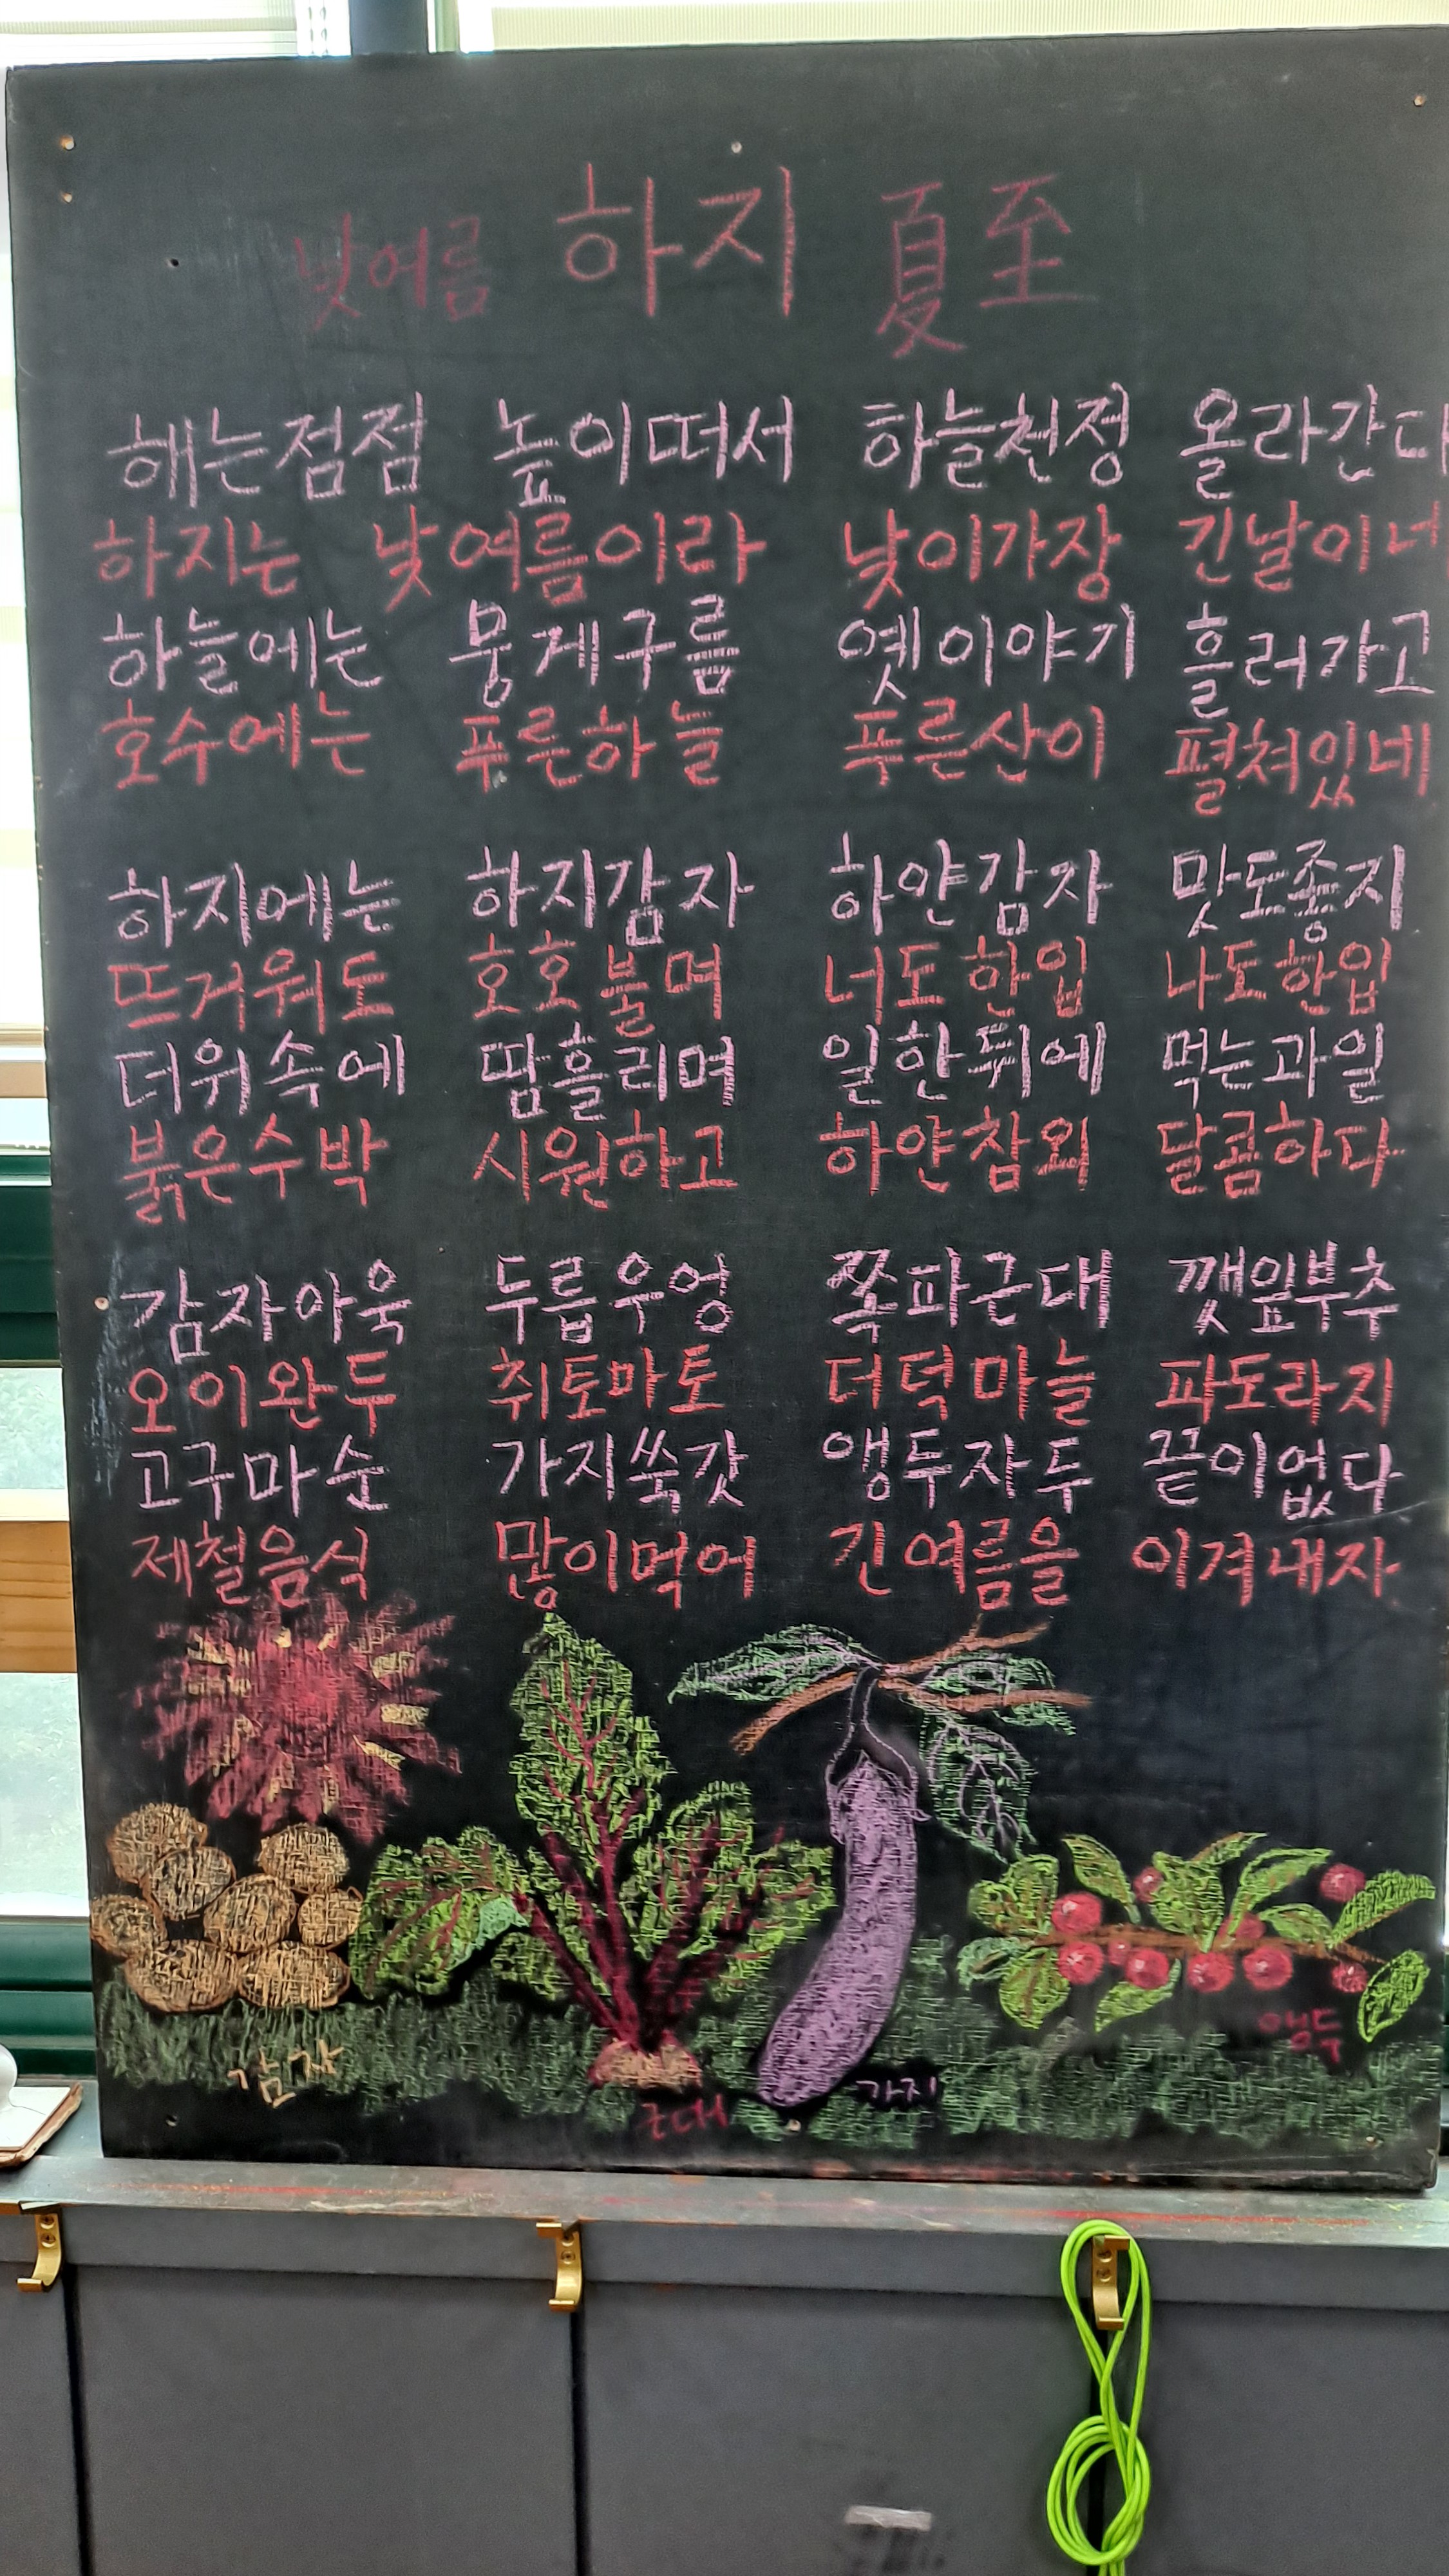 낮여름 하지 夏至
해는점점 높이떠서 하늘천정 올라간다
하지는 낮여름이라 낮이가장 긴날이네
하늘에는 뭉게구름 옛이야기 흘러가고
호수에는 푸른하늘 푸른산이 펼쳐있네
하지에는 하지감자 하얀감자 맛도좋지
뜨거워도 호호불며 너도한입 나도한입
더위속에 땀흘리며 일한뒤에 먹는과일
붉은수박 시원하고 하얀참외 달콤하다
감자아욱 두릅우엉 쪽파근대 깻잎부추
오이완두 취토마토 더덕마늘 파도라지
고구마순 가지쑥갓 앵두자두 끝이없다
제철음식 많이먹어 긴여름을 이겨내자
감자
근대
가지
앵두